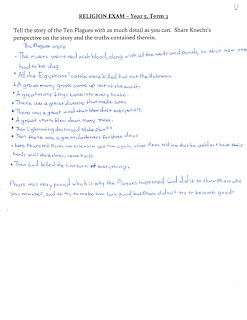 RELIGION EXAM – Year 5, Term 3
Tell the story of the Ten Plagues with as much detail as you can. Share Knecht's
perspective on the story and the truths contained therein.
The Plagues were
- The rivers were red with blood, along with all the wells and ponds, so that new one
had to be dug.
- All the Egyptians' cattle were killed but not the Hebrews.
- A great many gnats came up out of the earth.
- A great many frogs came into every house.
- There was a great disease that made sores
- There was a great wind that blew dirt everywhere.
- A great storm blew down many trees.
- Then lightening destroyed all the
- Then there was a great darkness for three days
- here Pharo said Moses can never see him again, when Moses told him that he would not have their
hearts until the three
- Then God killed the firstborn of everything.
Pharo was very proud which is why the Plagues happened. God did it to show them who
was mightier, and to try to make him turn good, but Pharo did not try to become good.